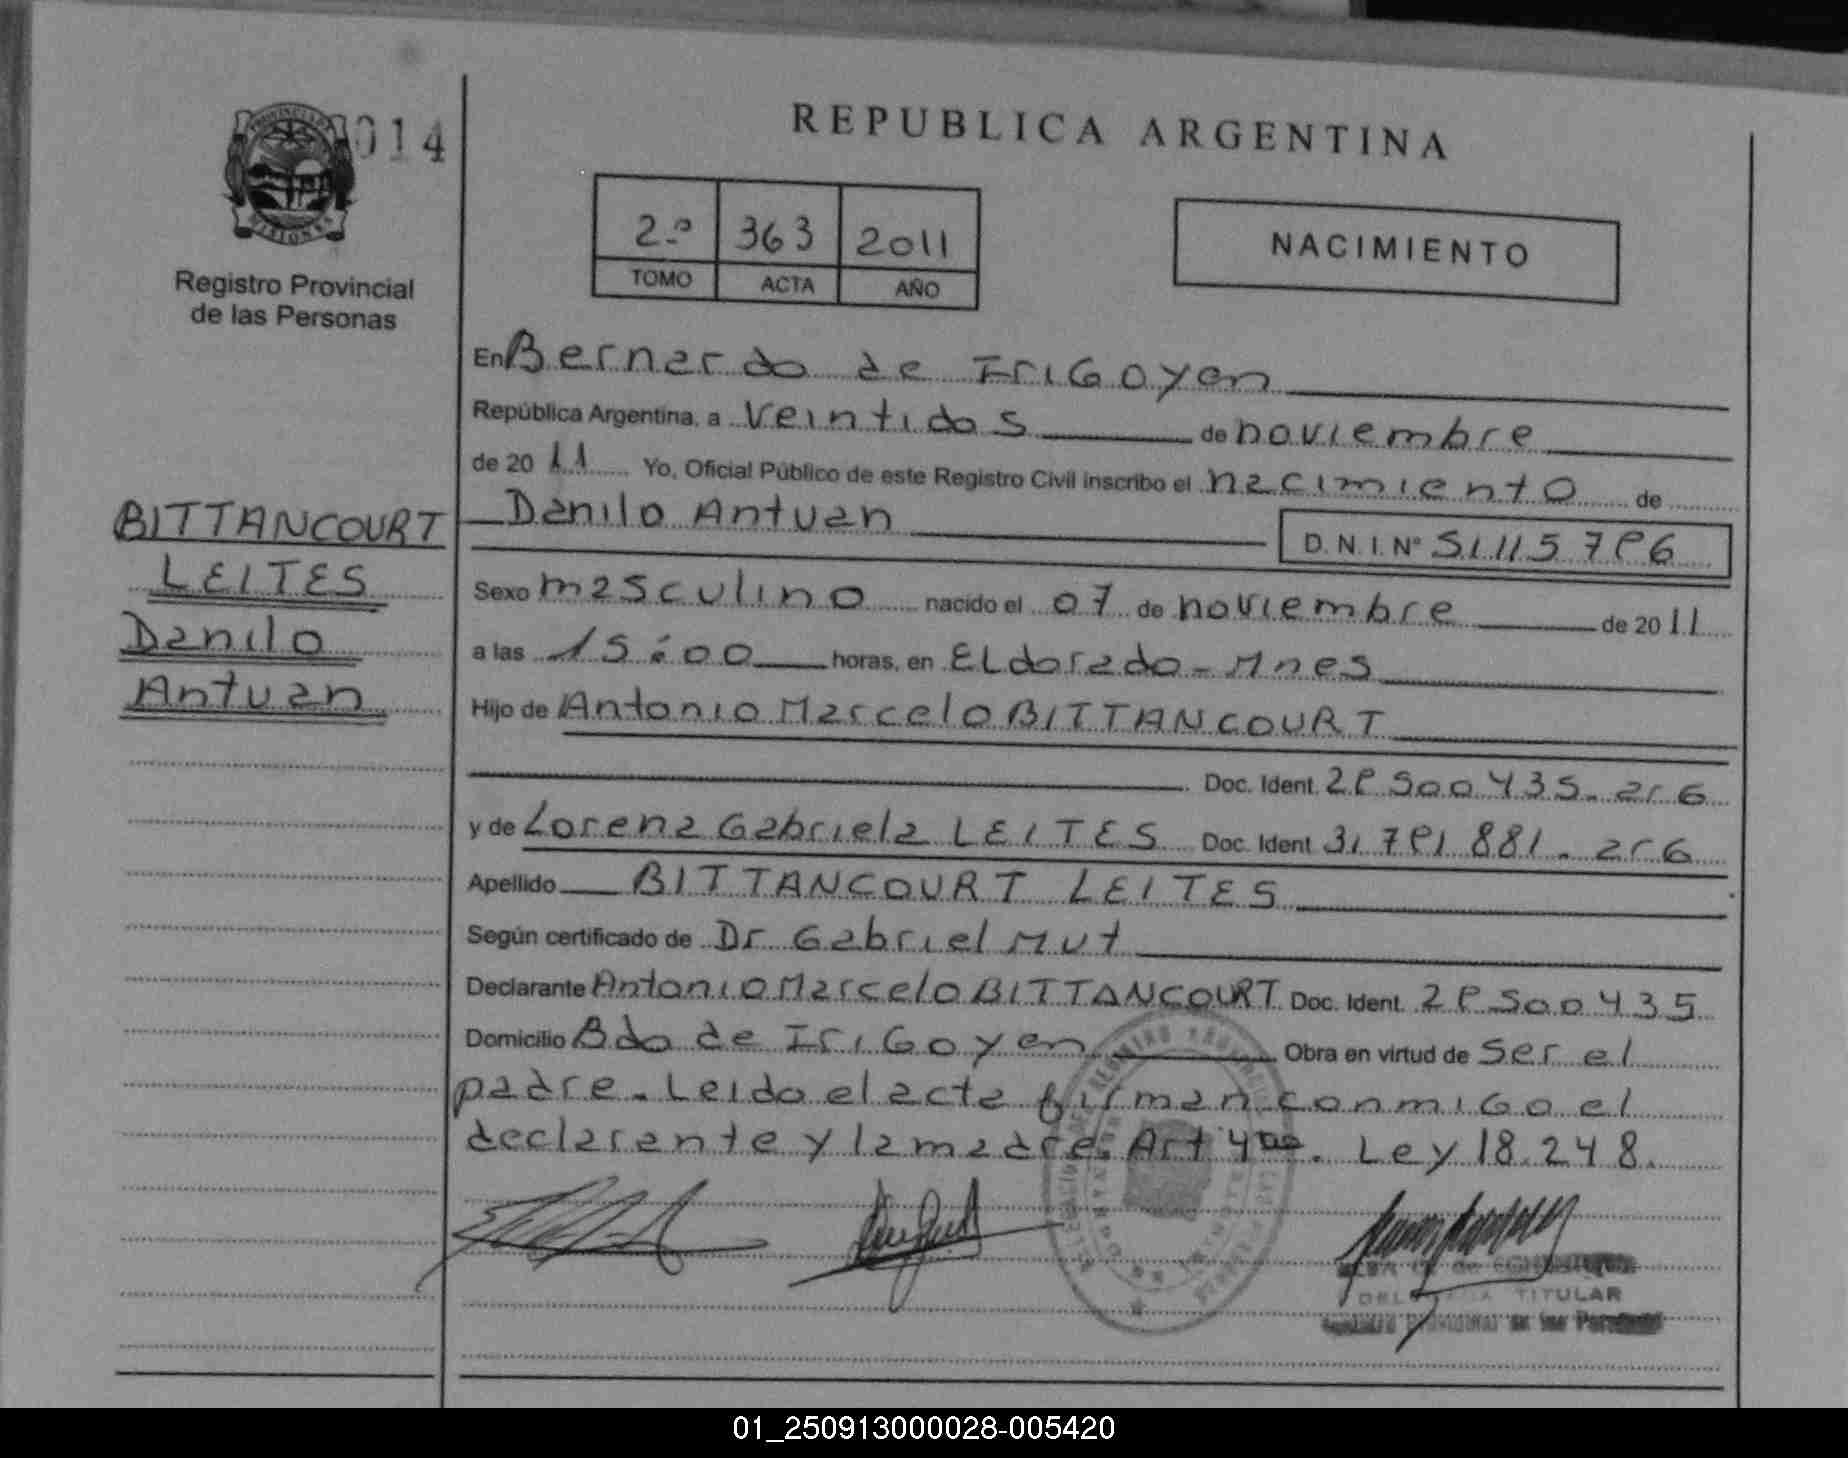 014
REPUBLICA ARGENTINA
2º 363 2011
TOMO ACTA AÑO
NACIMIENTO
MISIONES
Registro Provincial
de las Personas
BITTANCOURT
LEITES
Danilo
Antuan
En Bernardo de Irigoyen
República Argentina, a veintidos de noviembre
de 2011 Yo, Oficial Público de este Registro Civil inscribo el nacimiento de
Danilo Antuan
D.N.I. Nº 51.115.796
Sexo masculino nacido el 07 de noviembre de 2011
a las 15:00 horas, en Eldorado - Mnes
Hijo de Antonio Marcelo BITTANCOURT
Doc. Ident. 29.500.435. arg
y de Lorena Gabriela LEITES Doc. Ident. 31.791.881. arg
Apellido BITTANCOURT LEITES
Según certificado de Dr Gabriel Mut
Declarante Antonio Marcelo BITTANCOURT Doc. Ident. 29.500.435
Domicilio Bdo de Irigoyen Obra en virtud de ser el
padre. Leido el acta firman conmigo el
declarante y la madre. Art 4to. Ley 18.248.
TITULAR
01_250913000028-005420